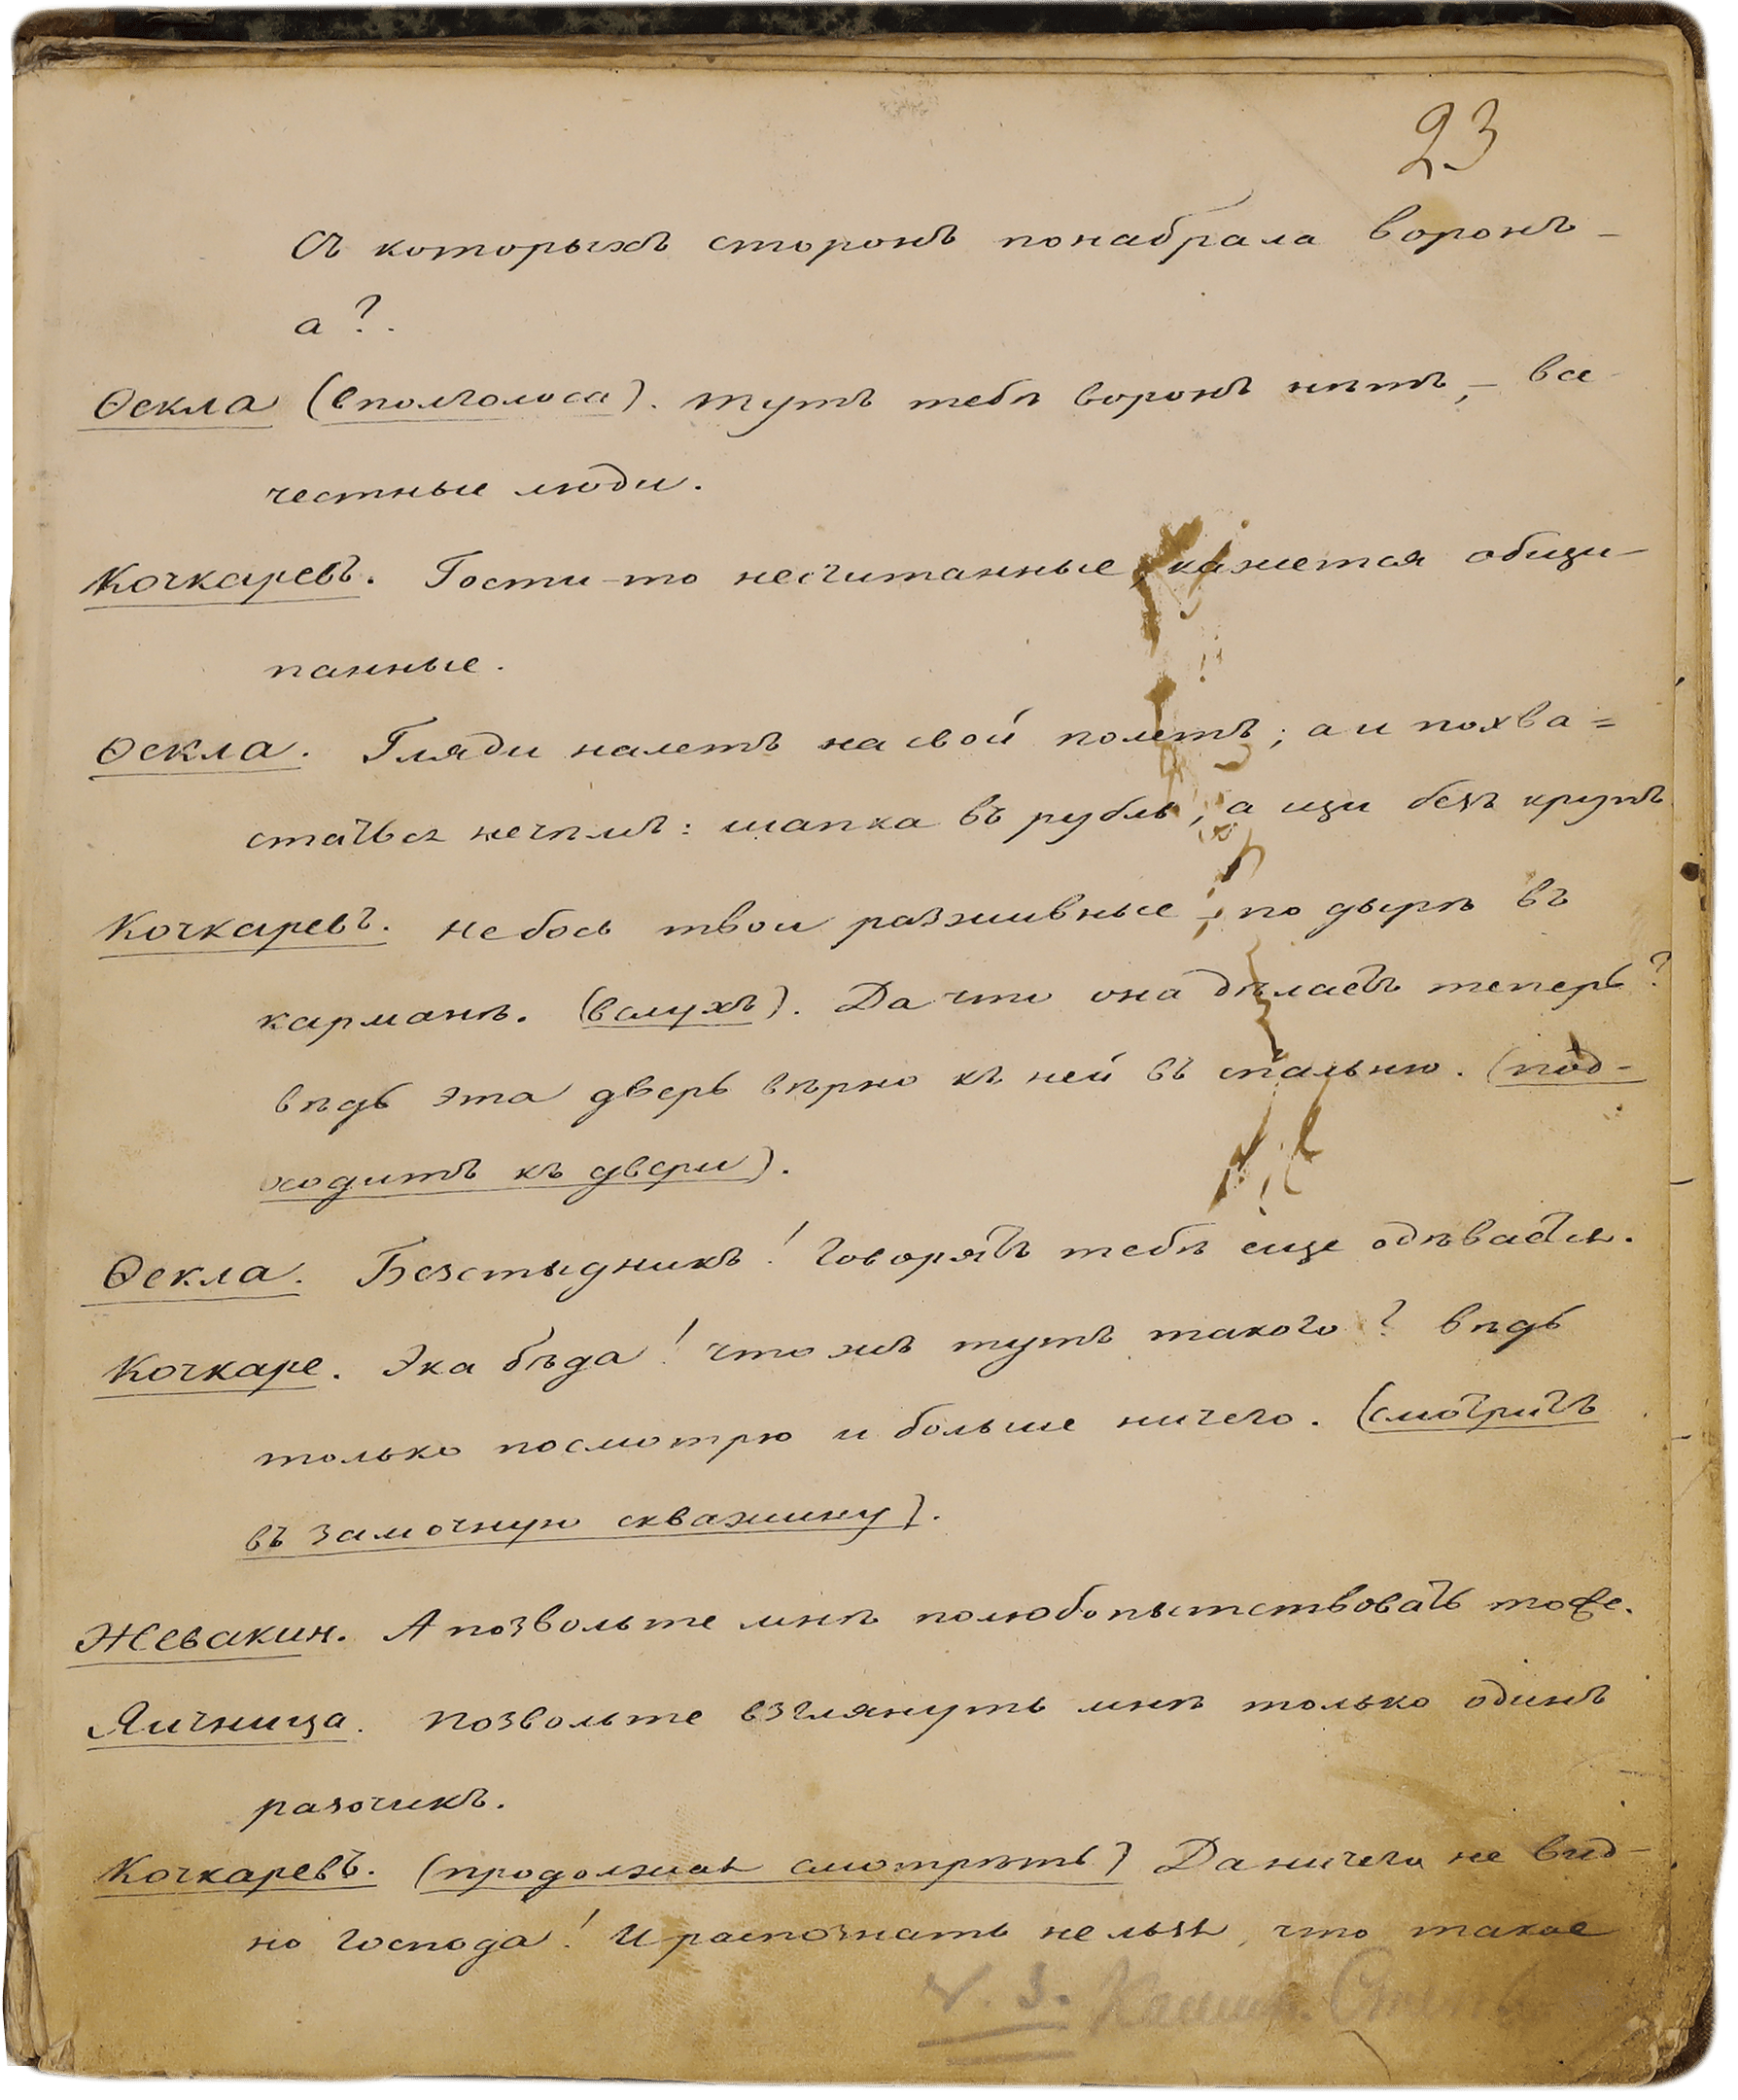 23
Съ которыхъ сторонъ понабрала воронъ –
а?.
Ѳекла (вполголоса). тутъ тебѣ воронъ нѣтъ, – все
честные люди.
Кочкаревъ. Гости-то несчитанные, кажется общи-
панные.
Ѳекла. Гляди налетъ на свой полетъ; а и похва=
статься нечѣмъ: шапка въ рубль, а щи безъ крупъ
Кочкаревъ. небось твои разживные, по дырѣ въ
карманѣ. (вслухъ). Да что она дѣлаетъ теперь?
вѣдь эта дверь вѣрно къ ней въ спальню. (под-
ходитъ къ двери).
Ѳекла. Безстыдникъ! говорятъ тебѣ еще одѣвается.
Кочкаре. Эка бѣда! что жъ тутъ такого? вѣдь
только посмотрю и больше ничего. (смотритъ
въ замочную скважину).
Жевакин. А позвольте мнѣ полюбопытствовать тоже.
Яичница. Позвольте взглянуть мнѣ только одинъ
разочикъ.
Кочкаревъ. (продолжая смотрѣть) Да ничего не вид-
но господа! И распознать нельзя, что такое